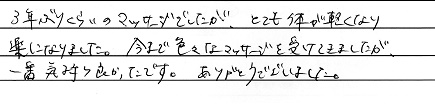 3年ぶりくらいのマッサージでしたが、とても体が軽くなり
楽になりました。今まで色々なマッサージを受けてきましたが、
一番気持ち良かったです。ありがとうございました。